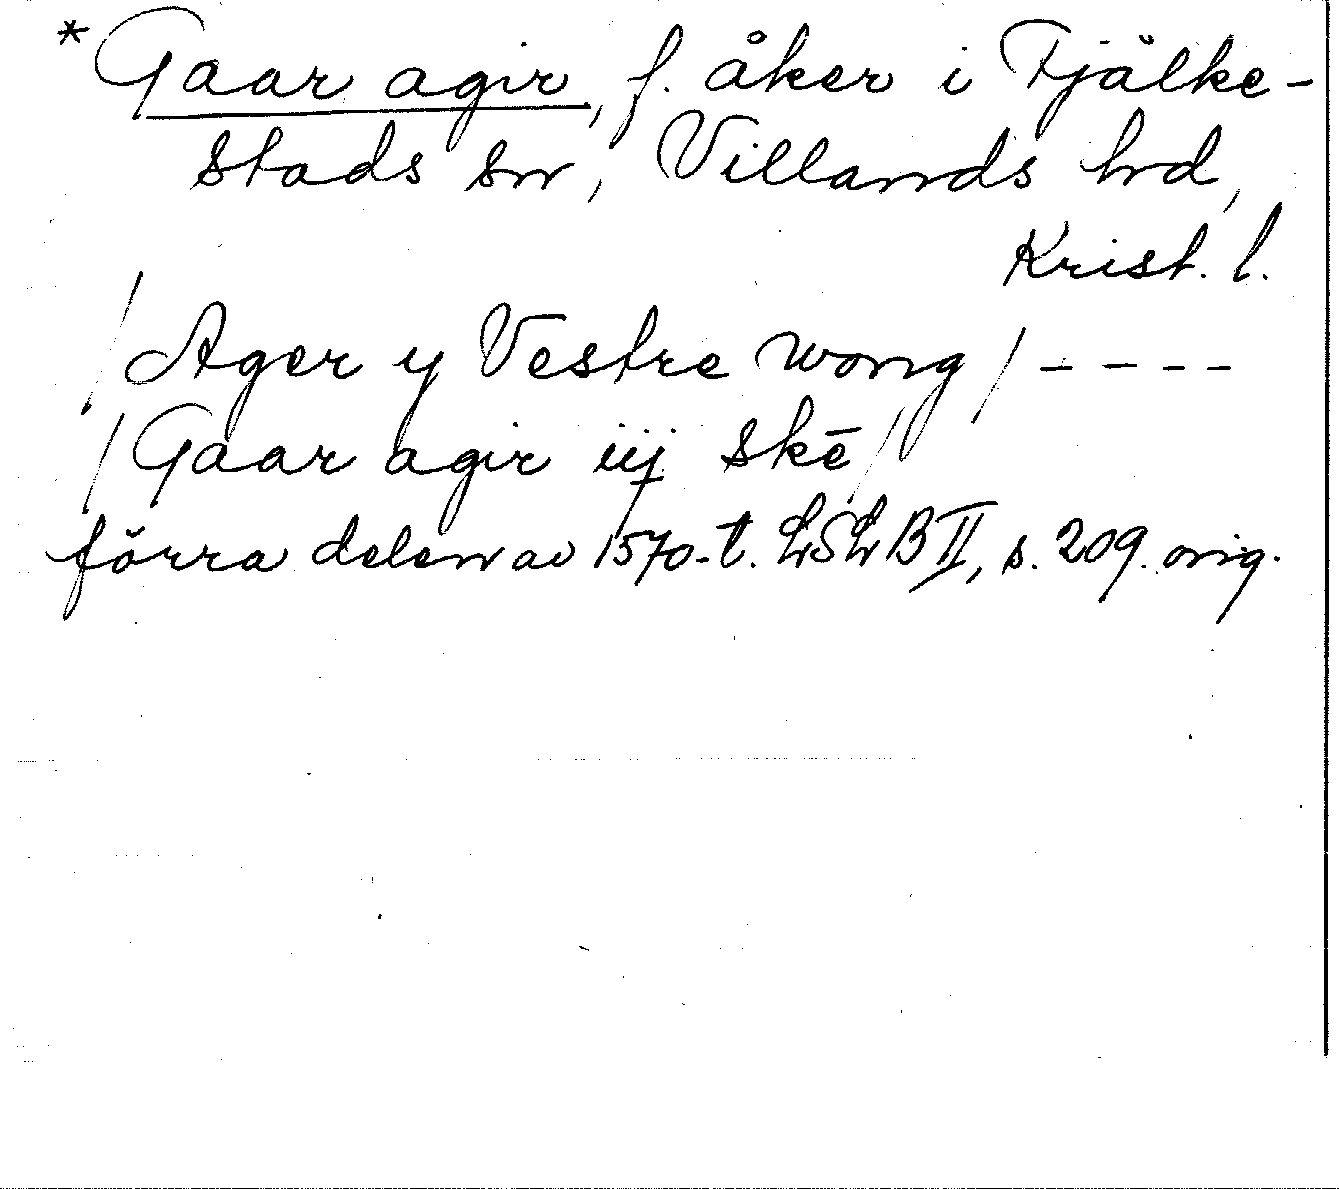 *Gaar agir, f. åker i Fjälke-
stads sn, Villands hrd,
Krist. l.
/Ager y Vestre wong/ ----
/Gaar agir iij skē/
förra delen av 1570-t. LSL B II, s. 209. orig.